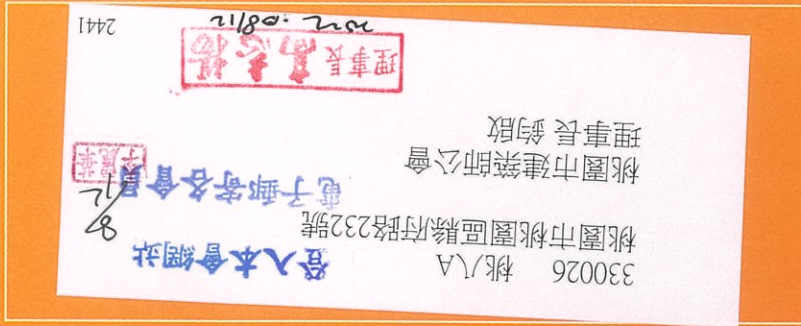 330026　桃八A
桃園市桃園區縣府路232號
桃園市建築師公會
理事長 鈞啟
登入本會網站
電子郵寄各會員
8/12
理事長
2441